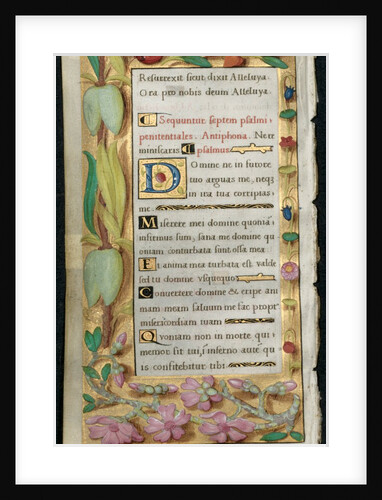 Resurrexit sicut dixit Alleluya.
Ora pro nobis deum Alleluya.
Sequuntur septem psalmi
penitentiales. Antiphona. Nere
miniscaris psalmus
Domine ne in furore
tuo arguas me, neqȝ
in ira tua corripias
me.
Miserere mei domine quoniã
infirmus sum, sana me domine qu
oniam conturbata sunt ossa mea.
Et anima mea turbata est valde
sed tu domine vsquequo
Conuertere domine & eripe ani
mam meam saluum me fac propt
misericordiam tuam
Quoniam non in morte qui
memor sit tui, ĩ inferno autẽ qu
is confitebitur tibi